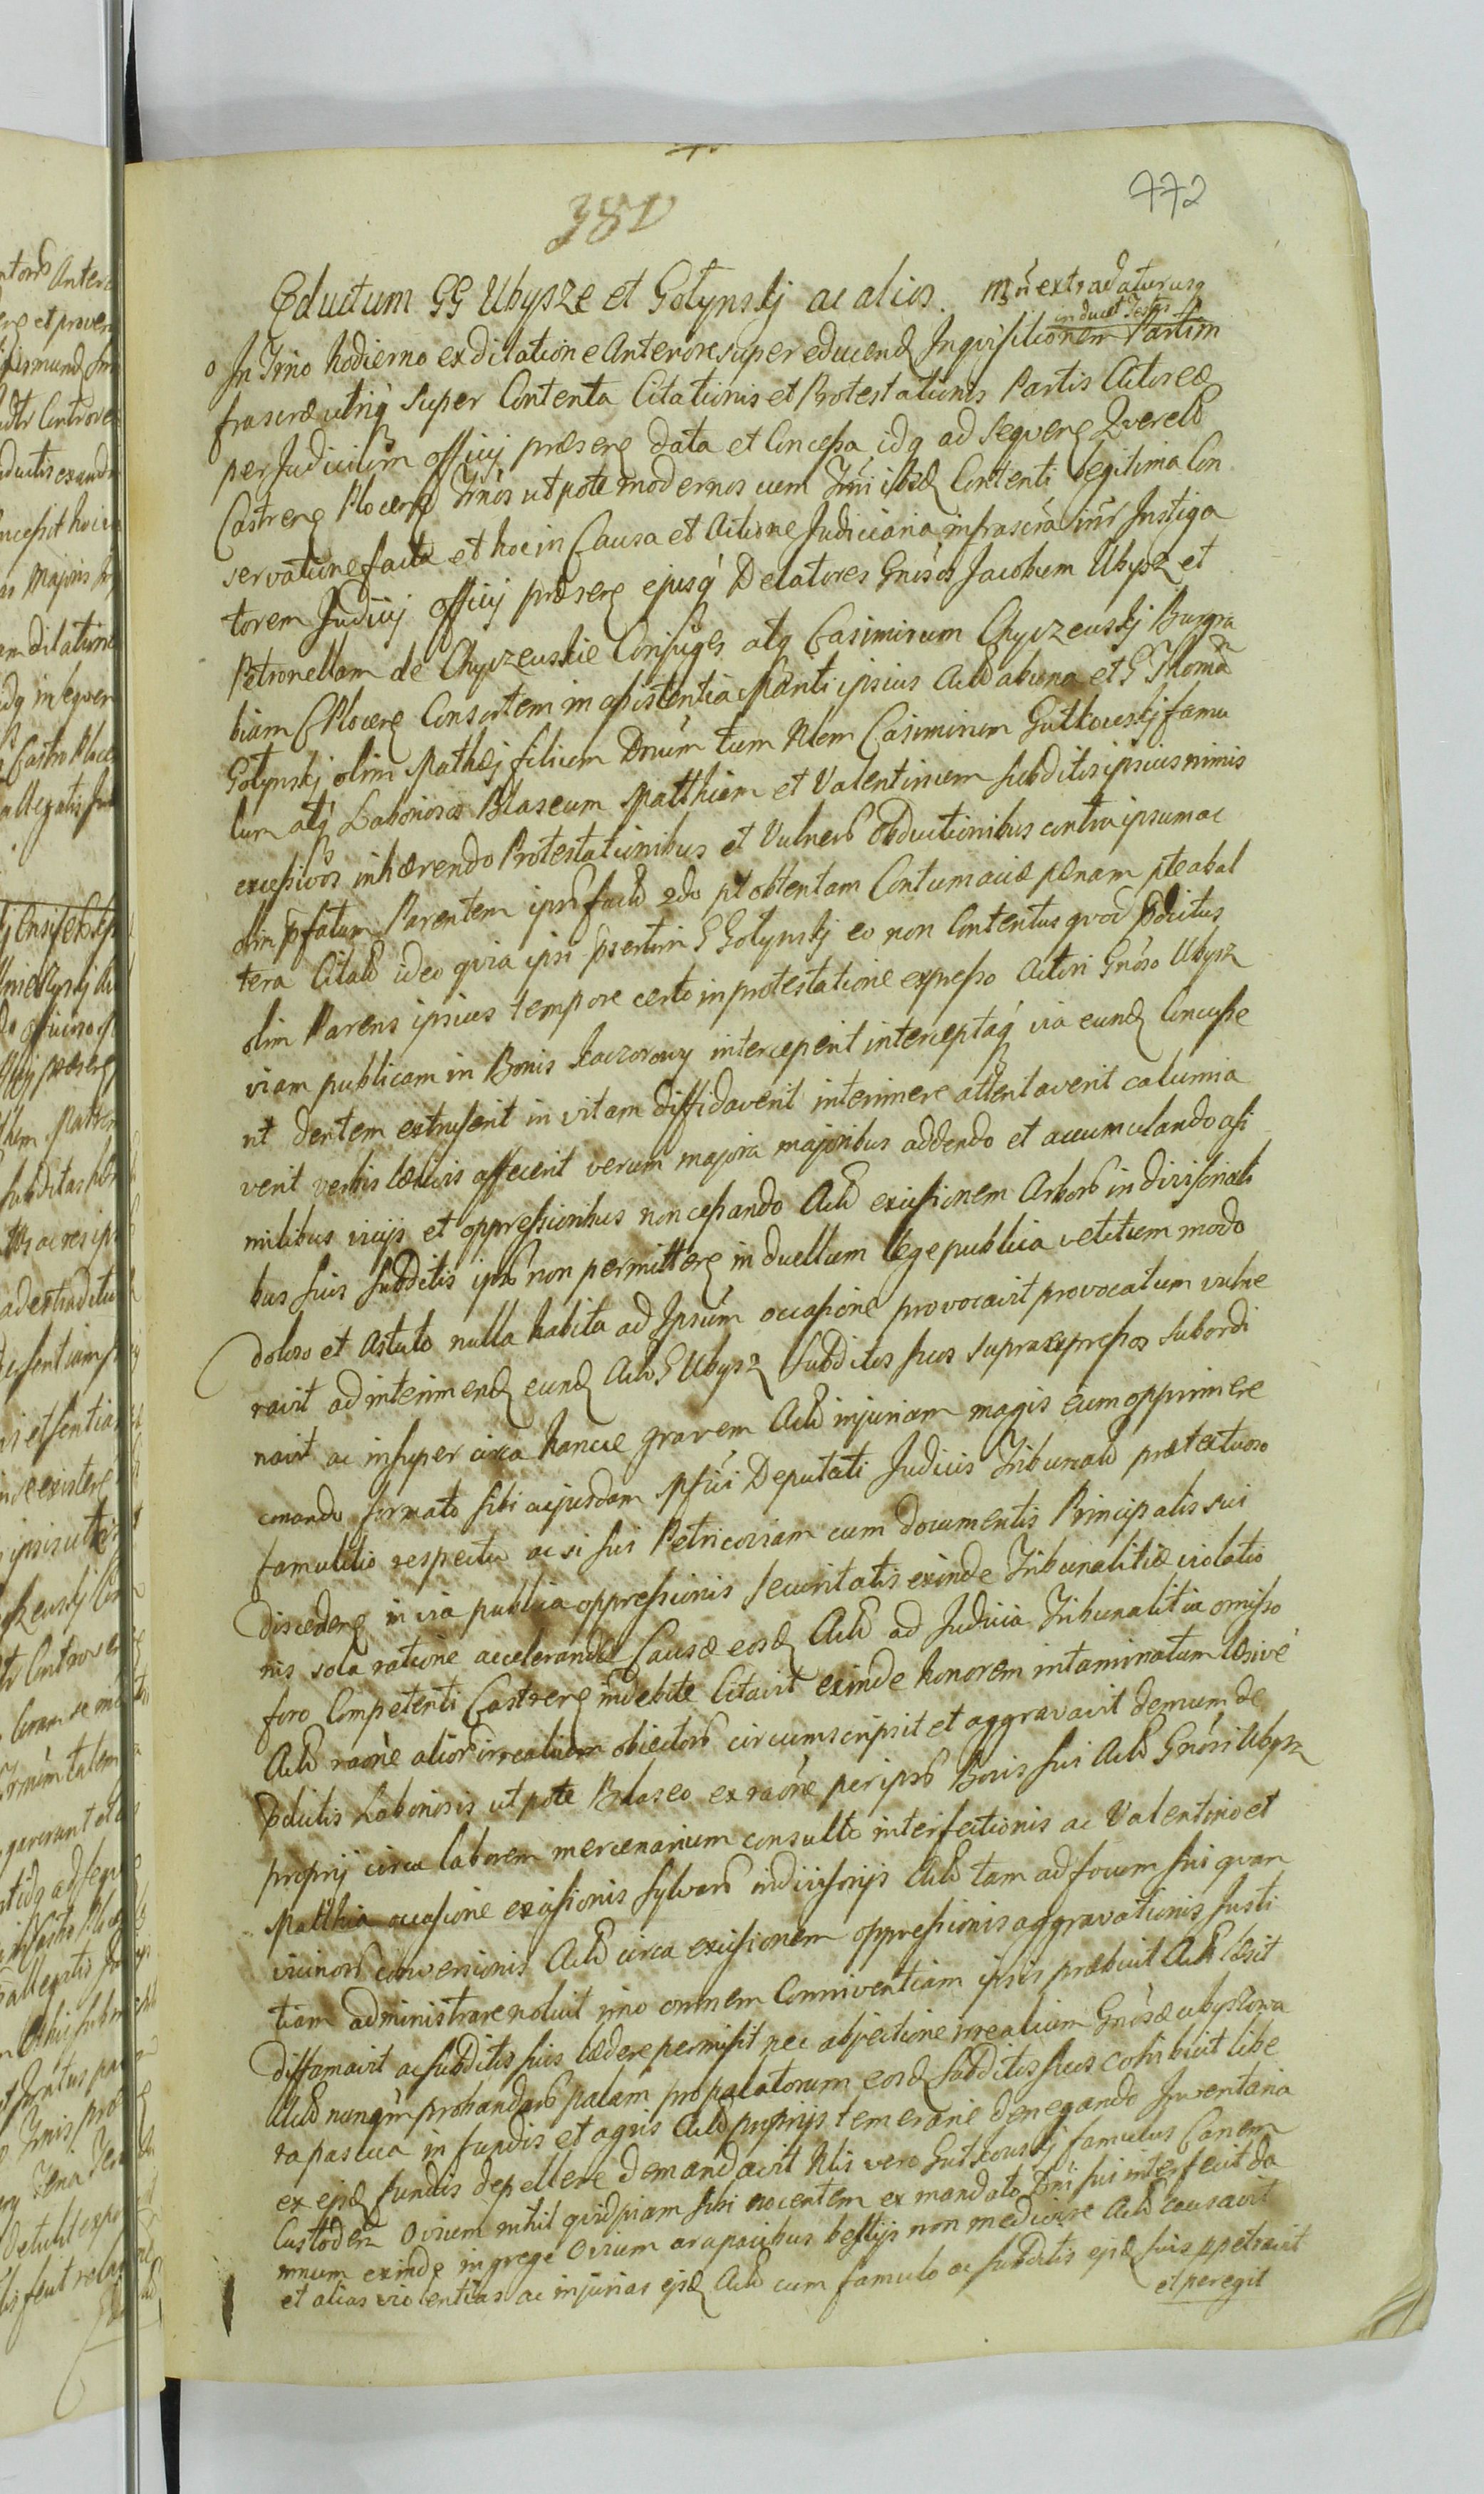 772
381
Eductum GG Ubysze et Gołynskj ac alios. extradatur usq
inducet Testes
In Trno hodierno ex dilatione Anteriore super educend Inquisitionem Partim
frascrae utriq super Contenta Citationis et Protestationis Partis Actoreae
per Judicium officij praesens data et Concessa idq ad sequens Querelar
Castrens Plocens Trnos utpote modernos cum Trni ibid Contenti legitima Con
servatione facta et hoc in Causa et Actione Judiciaria infrascra intr Instiga
torem Judicij officij praesens ejusq Delatores Gnosos Jacobum Ubysz et
Petronellam de Chyczewskie Conjuges atq Casimirum Chyczewskj Burgra
biam Plocens Consortem in assistentia Mariti ipsius Act ab una et G Thoma
Gołynskj olim Mathaej filium Dnum tum Nlem Casimirum Gutkowskj famu
lum atq Laboriosos Blaseum Matthiam et Valentinum subditos ipsius nimis
excessivos inhaerendo Protestationibus et Vulner obductionibus contra ipsum ac
olim pfatum Parentem ipsr fact 2do pt obtentam Contumaciae paenam pte ab al
tera Citat ideo quia ipsi psertim G Gołynskj eo non Contentus quod pdictus
olim Parens ipsius tempore certo in protestatione expresso Actori Gnoso Ubysz
viam publicam in Bonis Kaczorowy interceperit interceptaq via eund Concusse
rit dentem extruserit in vitam diffidaverit interimere attentaverit calumnia
verit verbis laesivis affecerit verum majora majoribus addendo et accumulando assi
milibus vicijs et oppressionibus non cessando Act excisionem Arbor in divisionali
bus suis subditis ipsr non permittens in duellum lege publica vetitum modo
doloso et Astuto nulla habita ad Ipsum occasione provocavit provocatum vulne
ravit ad interimend eund Act G Ubysz subditos suos supraexpressos subordi
navit ac insuper circa hancce gravem Act injuriam magis eum opprimere
conando formato sibi cujusdam Deputati Judicij Tribunal praetextuoso
famulitio respectu ac si sui Petricoviam cum documentis Principalis sui
discedens in via publica oppressionis securitatis exinde Tribunalitiae violatio
nis sola ratione accelerandae Causae eosd Act ad Judicia Tribunalitia omisso
foro Competenti Castrens indebite Citavit exinde honorem intaminatum laesive
Act raone alior irrealium obiector circumscripsit et aggravavit demum de
pdictis Laboriosis utpote Blaseo ex raone per ipsr Bovis sui Act Gnosi Ubysz
proprij circa laborem mercenarium consulto interfectionis ac Valentino et
Matthia occasione excisionis sylvar indivisorijs Act tam ad focum sui quam
vicinor conversionis Act circa excisionem oppressionis aggravationis Justi
tiam administrare noluit imo omnem Conniventiam ipsis praebuit Act laesit
diffamavit ac subditis suis laedere permisit nec abjectione irrealium Gnosae Ubyszowa
Act nunqm probandar palam propalatorum eosd subditos suos cohibuit libe
ra pascua in fundis et agris Act proprijs temerarie denegando Inventaria
ex ejsd fundis depellere demandavit Nlis vero Gutkowskj famulus Canem
Custodem Ovium nihil quidpiam sibi nocentem ex mandato Dni sui interfecit da
mnum exinde in grege Ovium a rapacibus bestijs non mediocre Act causavit
et alias violentias ac injurias ejsd Act cum famulo ac subditis ejsd suis ppetravit
et peregit